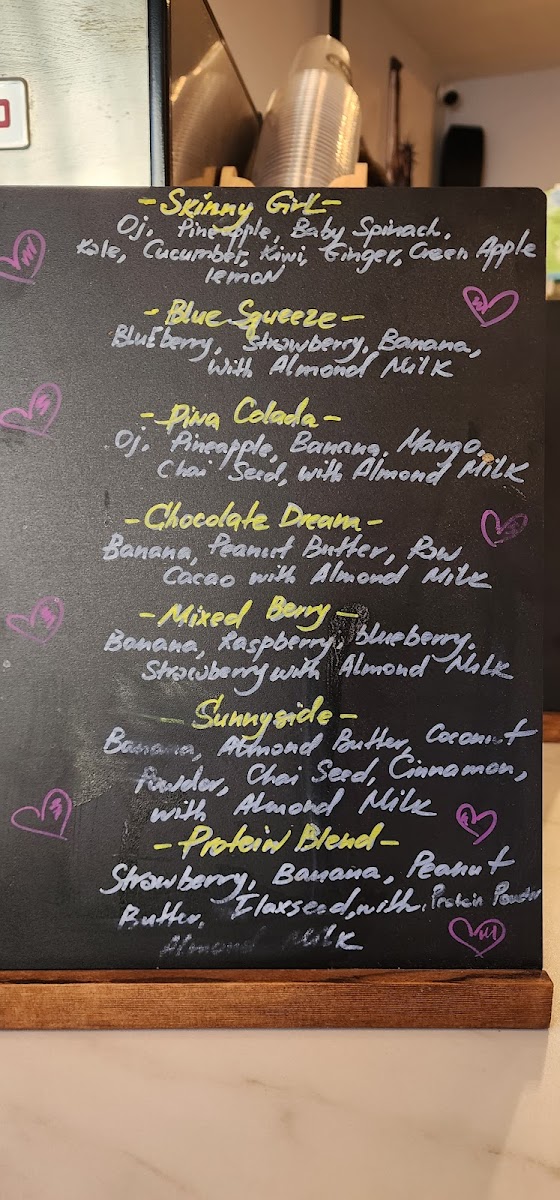 - Skinny Girl -
Oj, Pineapple, Baby Spinach,
Kale, Cucumber, Kiwi, Ginger, Green Apple
lemon
- Blue Squeeze -
Blueberry, Strawberry, Banana,
with Almond Milk
- Pina Colada -
Oj, Pineapple, Banana, Mango,
Chai Seed, with Almond Milk
- Chocolate Dream -
Banana, Peanut Butter, Raw
Cacao with Almond Milk
- Mixed Berry -
Banana, Raspberry, blueberry,
Strawberry with Almond Milk
- Sunnyside -
Banana, Almond Butter, Coconut
Powder, Chai Seed, Cinnamon,
with Almond Milk
- Protein Blend -
Strawberry, Banana, Peanut
Butter, Flaxseed, with, Protein Powder
Almond Milk